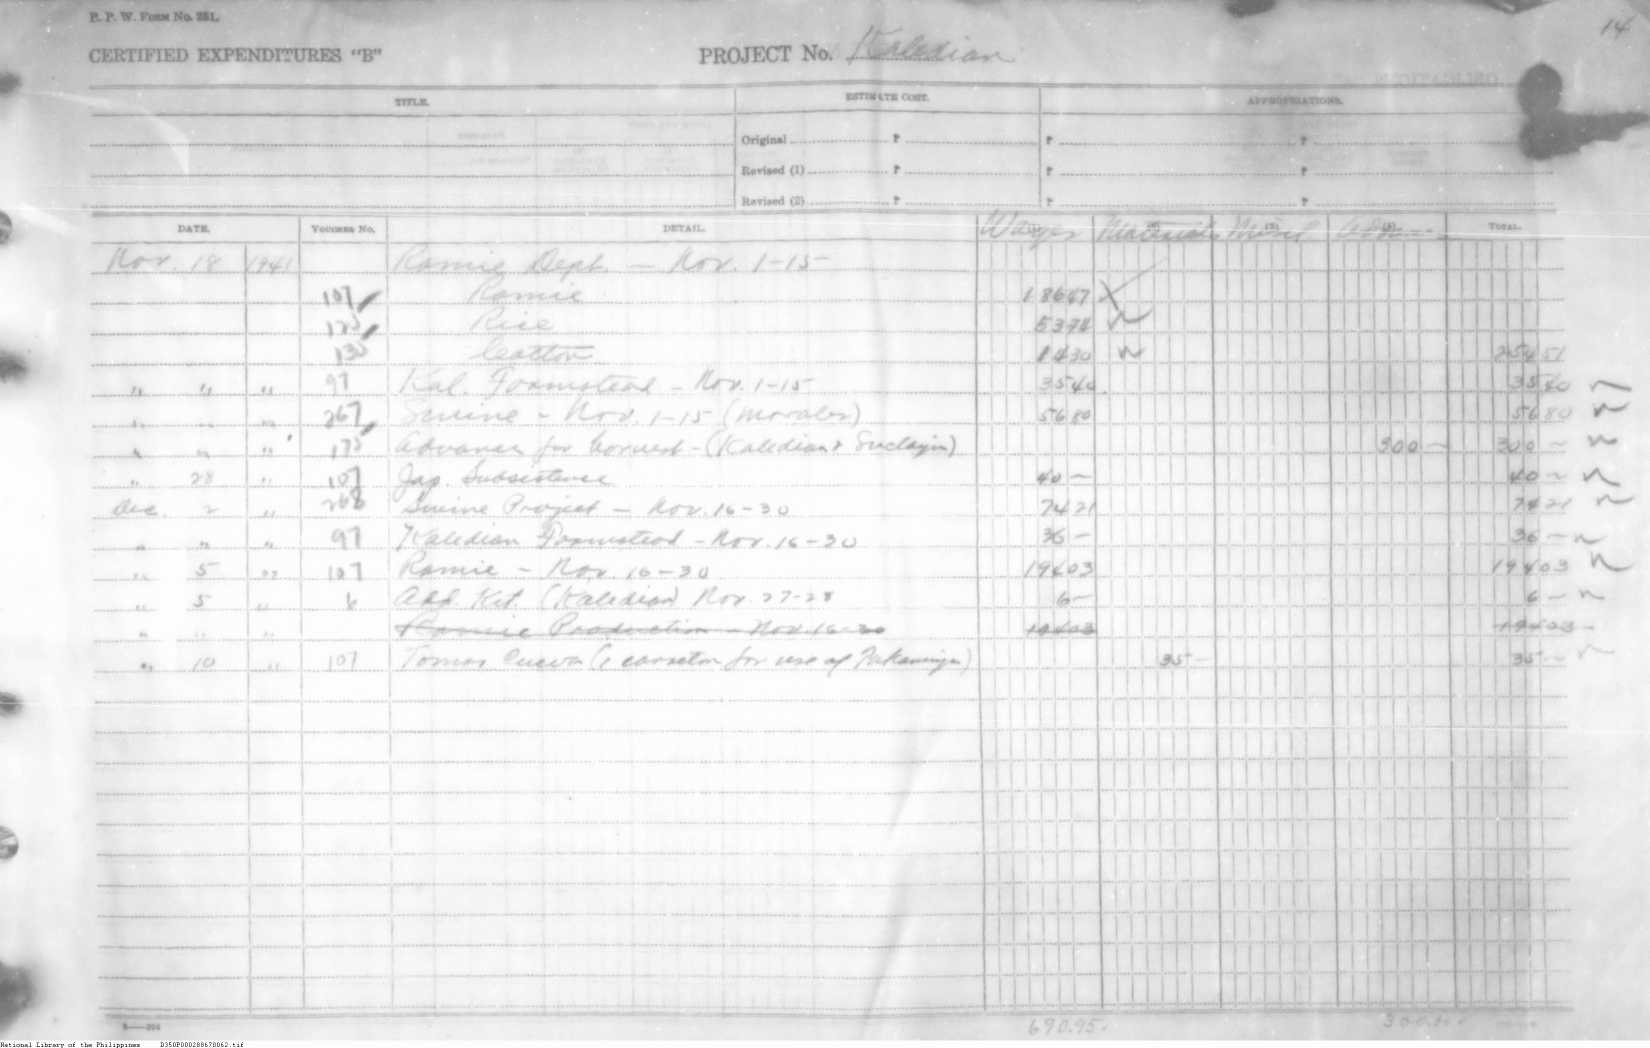 B. P. W. FORM NO. 251.
14
CERTIFIED EXPENDITURES "B" PROJECT No. Kaledian
TITLE. ESTIMATE COST. APPROPRIATIONS.
Original ₱ ₱ ₱
Revised (1) ₱ ₱ ₱
Revised (2) ₱ ₱ ₱
DATE. VOUCHER No. DETAIL. Wages Materials TOTAL.
Nov. 18 1941 Ramie Dept. — Nov. 1-15
107 Ramie 186 47
Rice 53 74
Cotton 14 30 254 51
" " " 97 Kal. Farmstead - Nov. 1-15 35 40 35 40
" " " 267 Swine - Nov. 1-15 (Morales) 56 80 56 80
" " " 175 Advance for harvest - (Kaledian & 300 — 300 —
" 28 " 107 Jap. Subsistence 40 — 40 —
Dec. 2 " 268 Swine Project — Nov. 16-30 74 21 74 21
" " " 97 Kaledian Farmstead - Nov. 16-30 36 — 36 —
" 5 " 107 Ramie - Nov. 16-30 194 03 194 03
" 5 " 6 Add. Kit. (Kaledian) Nov. 27-28 6 — 6 —
" " " Ramie Production - Nov. 16-30 194 03 194 03
" 10 " 107 Tomas Cueva (1 for use of 35 — 35 —
690.95
300.00
National Library of the Philippines D350P000288678062.tif